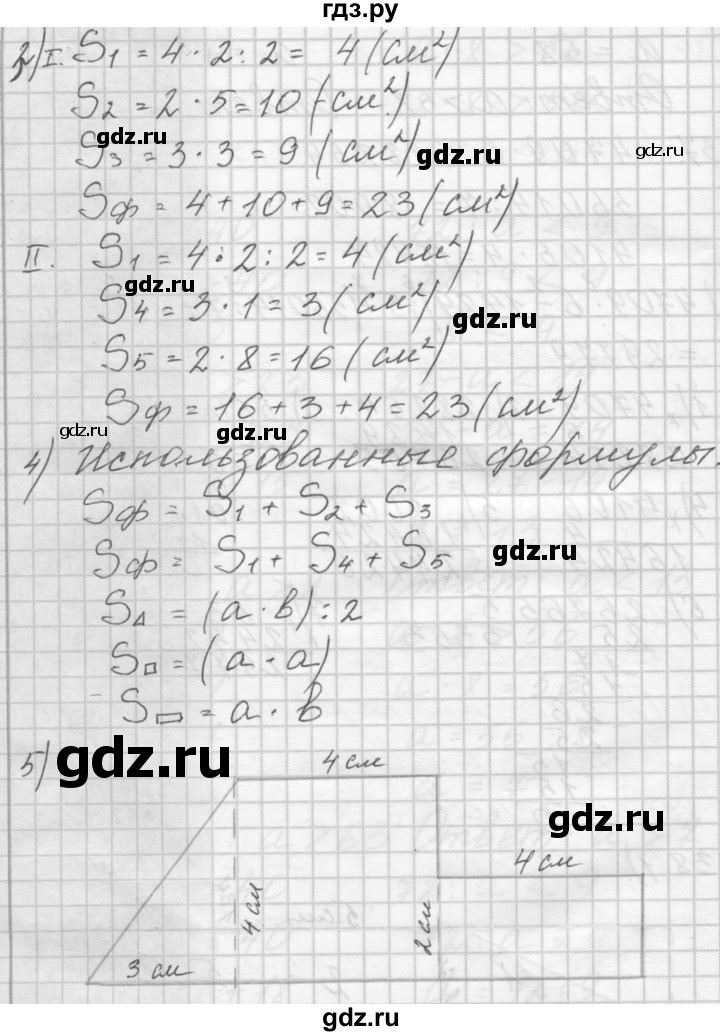 гдз.ру
3) I. S₁ = 4 · 2 : 2 = 4 (см²)
S₂ = 2 · 5 = 10 (см²)
gdz.ru
S₃ = 3 · 3 = 9 (см²)
gdz.ru
gdz.ru
Sф = 4 + 10 + 9 = 23 (см²)
II. S₁ = 4 · 2 : 2 = 4 (см²)
gdz.ru
S₄ = 3 · 1 = 3 (см²)
gdz.ru
S₅ = 2 · 8 = 16 (см²)
Sф = 16 + 3 + 4 = 23 (см²)
gdz.ru
gdz.ru
4) Использованные формулы.
Sф = S₁ + S₂ + S₃
Sф = S₁ + S₄ + S₅
gdz.ru
S△ = (a · в) : 2
S□ = (a · a)
S▭ = a · в
5)
gdz.ru
4 см
gdz.ru
4 см
4 см
2 см
3 см
gdz.ru